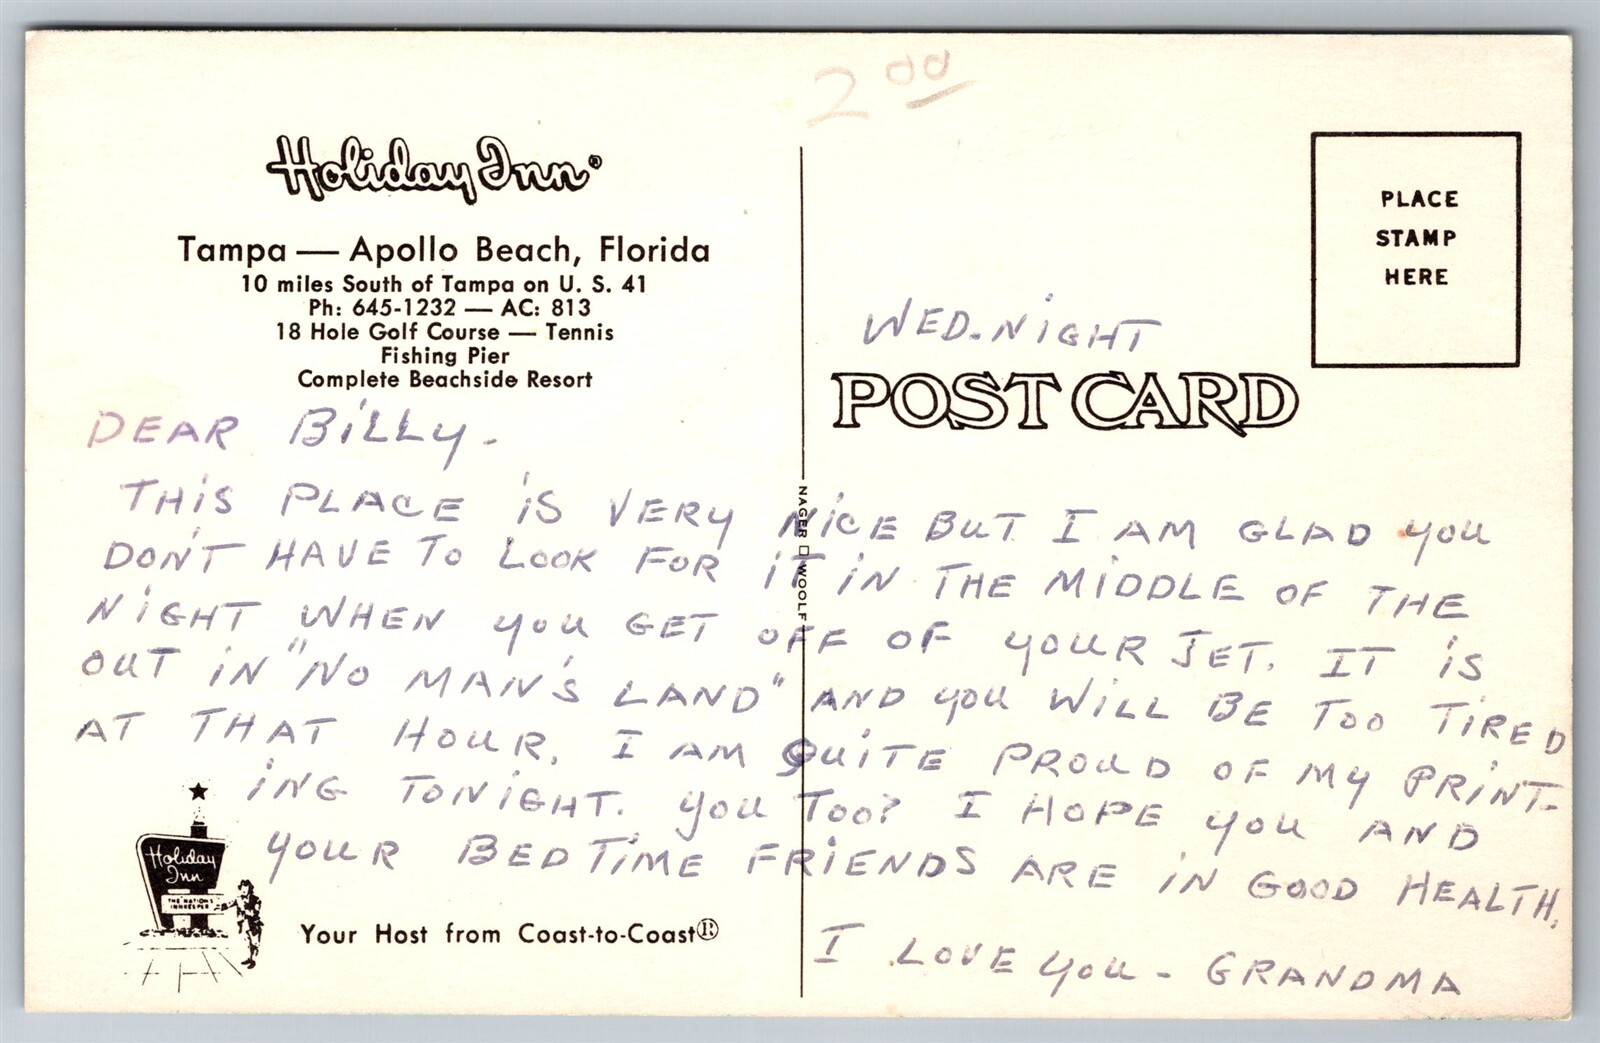 2 00
Holiday Inn®
Tampa — Apollo Beach, Florida
10 miles South of Tampa on U. S. 41
Ph: 645-1232 — AC: 813
18 Hole Golf Course — Tennis
Fishing Pier
Complete Beachside Resort
PLACE
STAMP
HERE
WED. NIGHT
POST CARD
NAGER □ WOOLF
DEAR BILLY -
THIS PLACE IS VERY NICE BUT I AM GLAD YOU
DON'T HAVE TO LOOK FOR IT IN THE MIDDLE OF THE
NIGHT WHEN YOU GET OFF OF YOUR JET. IT IS
OUT IN "NO MAN'S LAND" AND YOU WILL BE TOO TIRED
AT THAT HOUR. I AM QUITE PROUD OF MY PRINT-
ING TONIGHT. YOU TOO? I HOPE YOU AND
YOUR BEDTIME FRIENDS ARE IN GOOD HEALTH.
I LOVE YOU - GRANDMA
Holiday
Inn
THE NATION'S
INNKEEPER
Your Host from Coast-to-Coast®